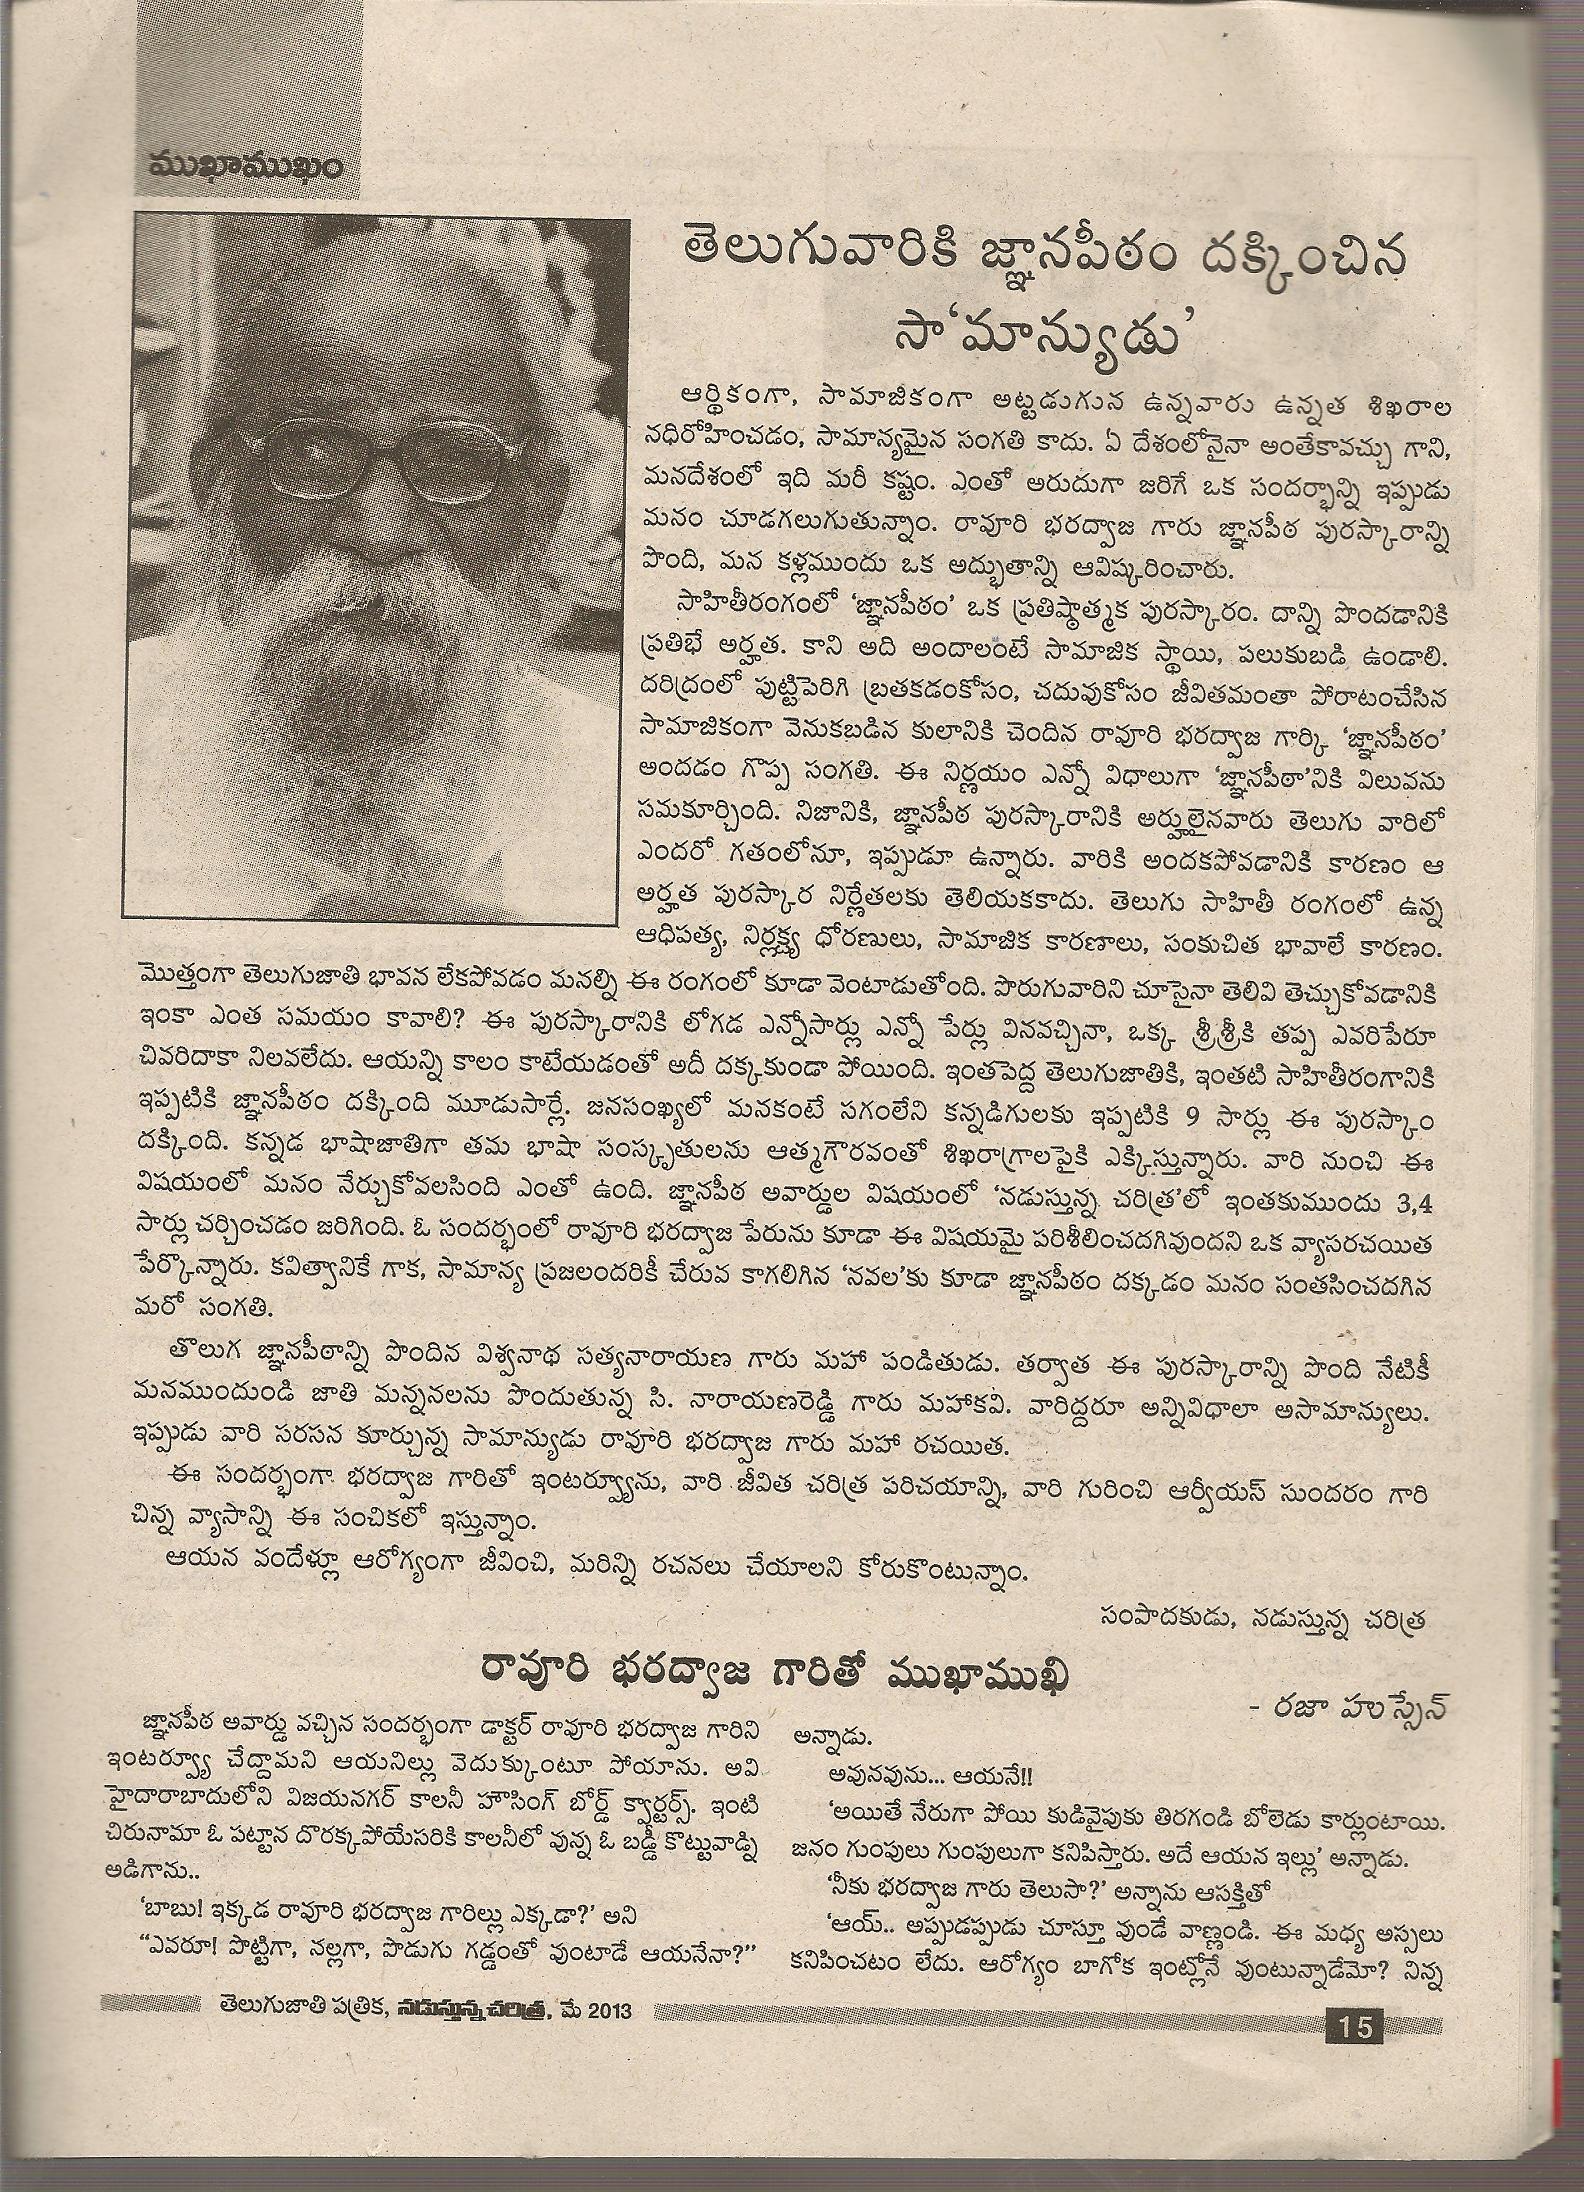 ముఖాముఖం
తెలుగువారికి జ్ఞానపీఠం దక్కించిన
సా‘మాన్యుడు’
ఆర్థికంగా, సామాజికంగా అట్టడుగున ఉన్నవారు ఉన్నత శిఖరాల
నధిరోహించడం, సామాన్యమైన సంగతి కాదు. ఏ దేశంలోనైనా అంతేకావచ్చు గాని,
మనదేశంలో ఇది మరీ కష్టం. ఎంతో అరుదుగా జరిగే ఒక సందర్భాన్ని ఇప్పుడు
మనం చూడగలుగుతున్నాం. రావూరి భరద్వాజ గారు జ్ఞానపీఠ పురస్కారాన్ని
పొంది, మన కళ్లముందు ఒక అద్భుతాన్ని ఆవిష్కరించారు.
సాహితీరంగంలో ‘జ్ఞానపీఠం’ ఒక ప్రతిష్ఠాత్మక పురస్కారం. దాన్ని పొందడానికి
ప్రతిభే అర్హత. కాని అది అందాలంటే సామాజిక స్థాయి, పలుకుబడి ఉండాలి.
దరిద్రంలో పుట్టిపెరిగి బ్రతకడంకోసం, చదువుకోసం జీవితమంతా పోరాటంచేసిన
సామాజికంగా వెనుకబడిన కులానికి చెందిన రావూరి భరద్వాజ గార్కి ‘జ్ఞానపీఠం’
అందడం గొప్ప సంగతి. ఈ నిర్ణయం ఎన్నో విధాలుగా ‘జ్ఞానపీఠా’నికి విలువను
సమకూర్చింది. నిజానికి, జ్ఞానపీఠ పురస్కారానికి అర్హులైనవారు తెలుగు వారిలో
ఎందరో గతంలోనూ, ఇప్పుడూ ఉన్నారు. వారికి అందకపోవడానికి కారణం ఆ
అర్హత పురస్కార నిర్ణేతలకు తెలియకకాదు. తెలుగు సాహితీ రంగంలో ఉన్న
ఆధిపత్య, నిర్లక్ష్య ధోరణులు, సామాజిక కారణాలు, సంకుచిత భావాలే కారణం.
మొత్తంగా తెలుగుజాతి భావన లేకపోవడం మనల్ని ఈ రంగంలో కూడా వెంటాడుతోంది. పొరుగువారిని చూసైనా తెలివి తెచ్చుకోవడానికి
ఇంకా ఎంత సమయం కావాలి? ఈ పురస్కారానికి లోగడ ఎన్నోసార్లు ఎన్నో పేర్లు వినవచ్చినా, ఒక్క శ్రీశ్రీకి తప్ప ఎవరిపేరూ
చివరిదాకా నిలవలేదు. ఆయన్ని కాలం కాటేయడంతో అదీ దక్కకుండా పోయింది. ఇంతపెద్ద తెలుగుజాతికి, ఇంతటి సాహితీరంగానికి
ఇప్పటికి జ్ఞానపీఠం దక్కింది మూడుసార్లే. జనసంఖ్యలో మనకంటే సగంలేని కన్నడిగులకు ఇప్పటికి 9 సార్లు ఈ పురస్కాం
దక్కింది. కన్నడ భాషాజాతిగా తమ భాషా సంస్కృతులను ఆత్మగౌరవంతో శిఖరాగ్రాలపైకి ఎక్కిస్తున్నారు. వారి నుంచి ఈ
విషయంలో మనం నేర్చుకోవలసింది ఎంతో ఉంది. జ్ఞానపీఠ అవార్డుల విషయంలో ‘నడుస్తున్న చరిత్ర’లో ఇంతకుముందు 3,4
సార్లు చర్చించడం జరిగింది. ఓ సందర్భంలో రావూరి భరద్వాజ పేరును కూడా ఈ విషయమై పరిశీలించదగివుందని ఒక వ్యాసరచయిత
పేర్కొన్నారు. కవిత్వానికే గాక, సామాన్య ప్రజలందరికీ చేరువ కాగలిగిన ‘నవల’కు కూడా జ్ఞానపీఠం దక్కడం మనం సంతసించదగిన
మరో సంగతి.
తొలుగ జ్ఞానపీఠాన్ని పొందిన విశ్వనాథ సత్యనారాయణ గారు మహా పండితుడు. తర్వాత ఈ పురస్కారాన్ని పొంది నేటికీ
మనముందుండి జాతి మన్ననలను పొందుతున్న సి. నారాయణరెడ్డి గారు మహాకవి. వారిద్దరూ అన్నివిధాలా అసామాన్యులు.
ఇప్పుడు వారి సరసన కూర్చున్న సామాన్యుడు రావూరి భరద్వాజ గారు మహా రచయిత.
ఈ సందర్భంగా భరద్వాజ గారితో ఇంటర్వ్యూను, వారి జీవిత చరిత్ర పరిచయాన్ని, వారి గురించి ఆర్వీయస్ సుందరం గారి
చిన్న వ్యాసాన్ని ఈ సంచికలో ఇస్తున్నాం.
ఆయన వందేళ్లూ ఆరోగ్యంగా జీవించి, మరిన్ని రచనలు చేయాలని కోరుకొంటున్నాం.
సంపాదకుడు, నడుస్తున్న చరిత్ర
రావూరి భరద్వాజ గారితో ముఖాముఖి
- రజా హుస్సేన్
జ్ఞానపీఠ అవార్డు వచ్చిన సందర్భంగా డాక్టర్ రావూరి భరద్వాజ గారిని
ఇంటర్వ్యూ చేద్దామని ఆయనిల్లు వెదుక్కుంటూ పోయాను. అవి
హైదారాబాదులోని విజయనగర్ కాలనీ హౌసింగ్ బోర్డ్ క్వార్టర్స్. ఇంటి
చిరునామా ఓ పట్టాన దొరక్కపోయేసరికి కాలనీలో వున్న ఓ బడ్డీ కొట్టువాడ్ని
అడిగాను..
‘బాబు! ఇక్కడ రావూరి భరద్వాజ గారిల్లు ఎక్కడా?’ అని
“ఎవరూ! పొట్టిగా, నల్లగా, పొడుగు గడ్డంతో వుంటాడే ఆయనేనా?”
అన్నాడు.
అవునవును... ఆయనే!!
‘అయితే నేరుగా పోయి కుడివైపుకు తిరగండి బోలెడు కార్లుంటాయి.
జనం గుంపులు గుంపులుగా కనిపిస్తారు. అదే ఆయన ఇల్లు’ అన్నాడు.
‘నీకు భరద్వాజ గారు తెలుసా?’ అన్నాను ఆసక్తితో
‘ఆయ్.. అప్పుడప్పుడు చూస్తూ వుండే వాణ్ణండి. ఈ మధ్య అస్సలు
కనిపించటం లేదు. ఆరోగ్యం బాగోక ఇంట్లోనే వుంటున్నాడేమో? నిన్న
తెలుగుజాతి పత్రిక, నడుస్తున్నచరిత్ర, మే 2013
15